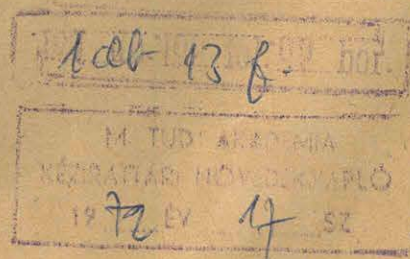 1 db 13 f.
M. TUD. AKADÉMIA
KÉZIRATTÁRI NÖVEDÉKNAPLÓ
1972 ÉV 17 SZ